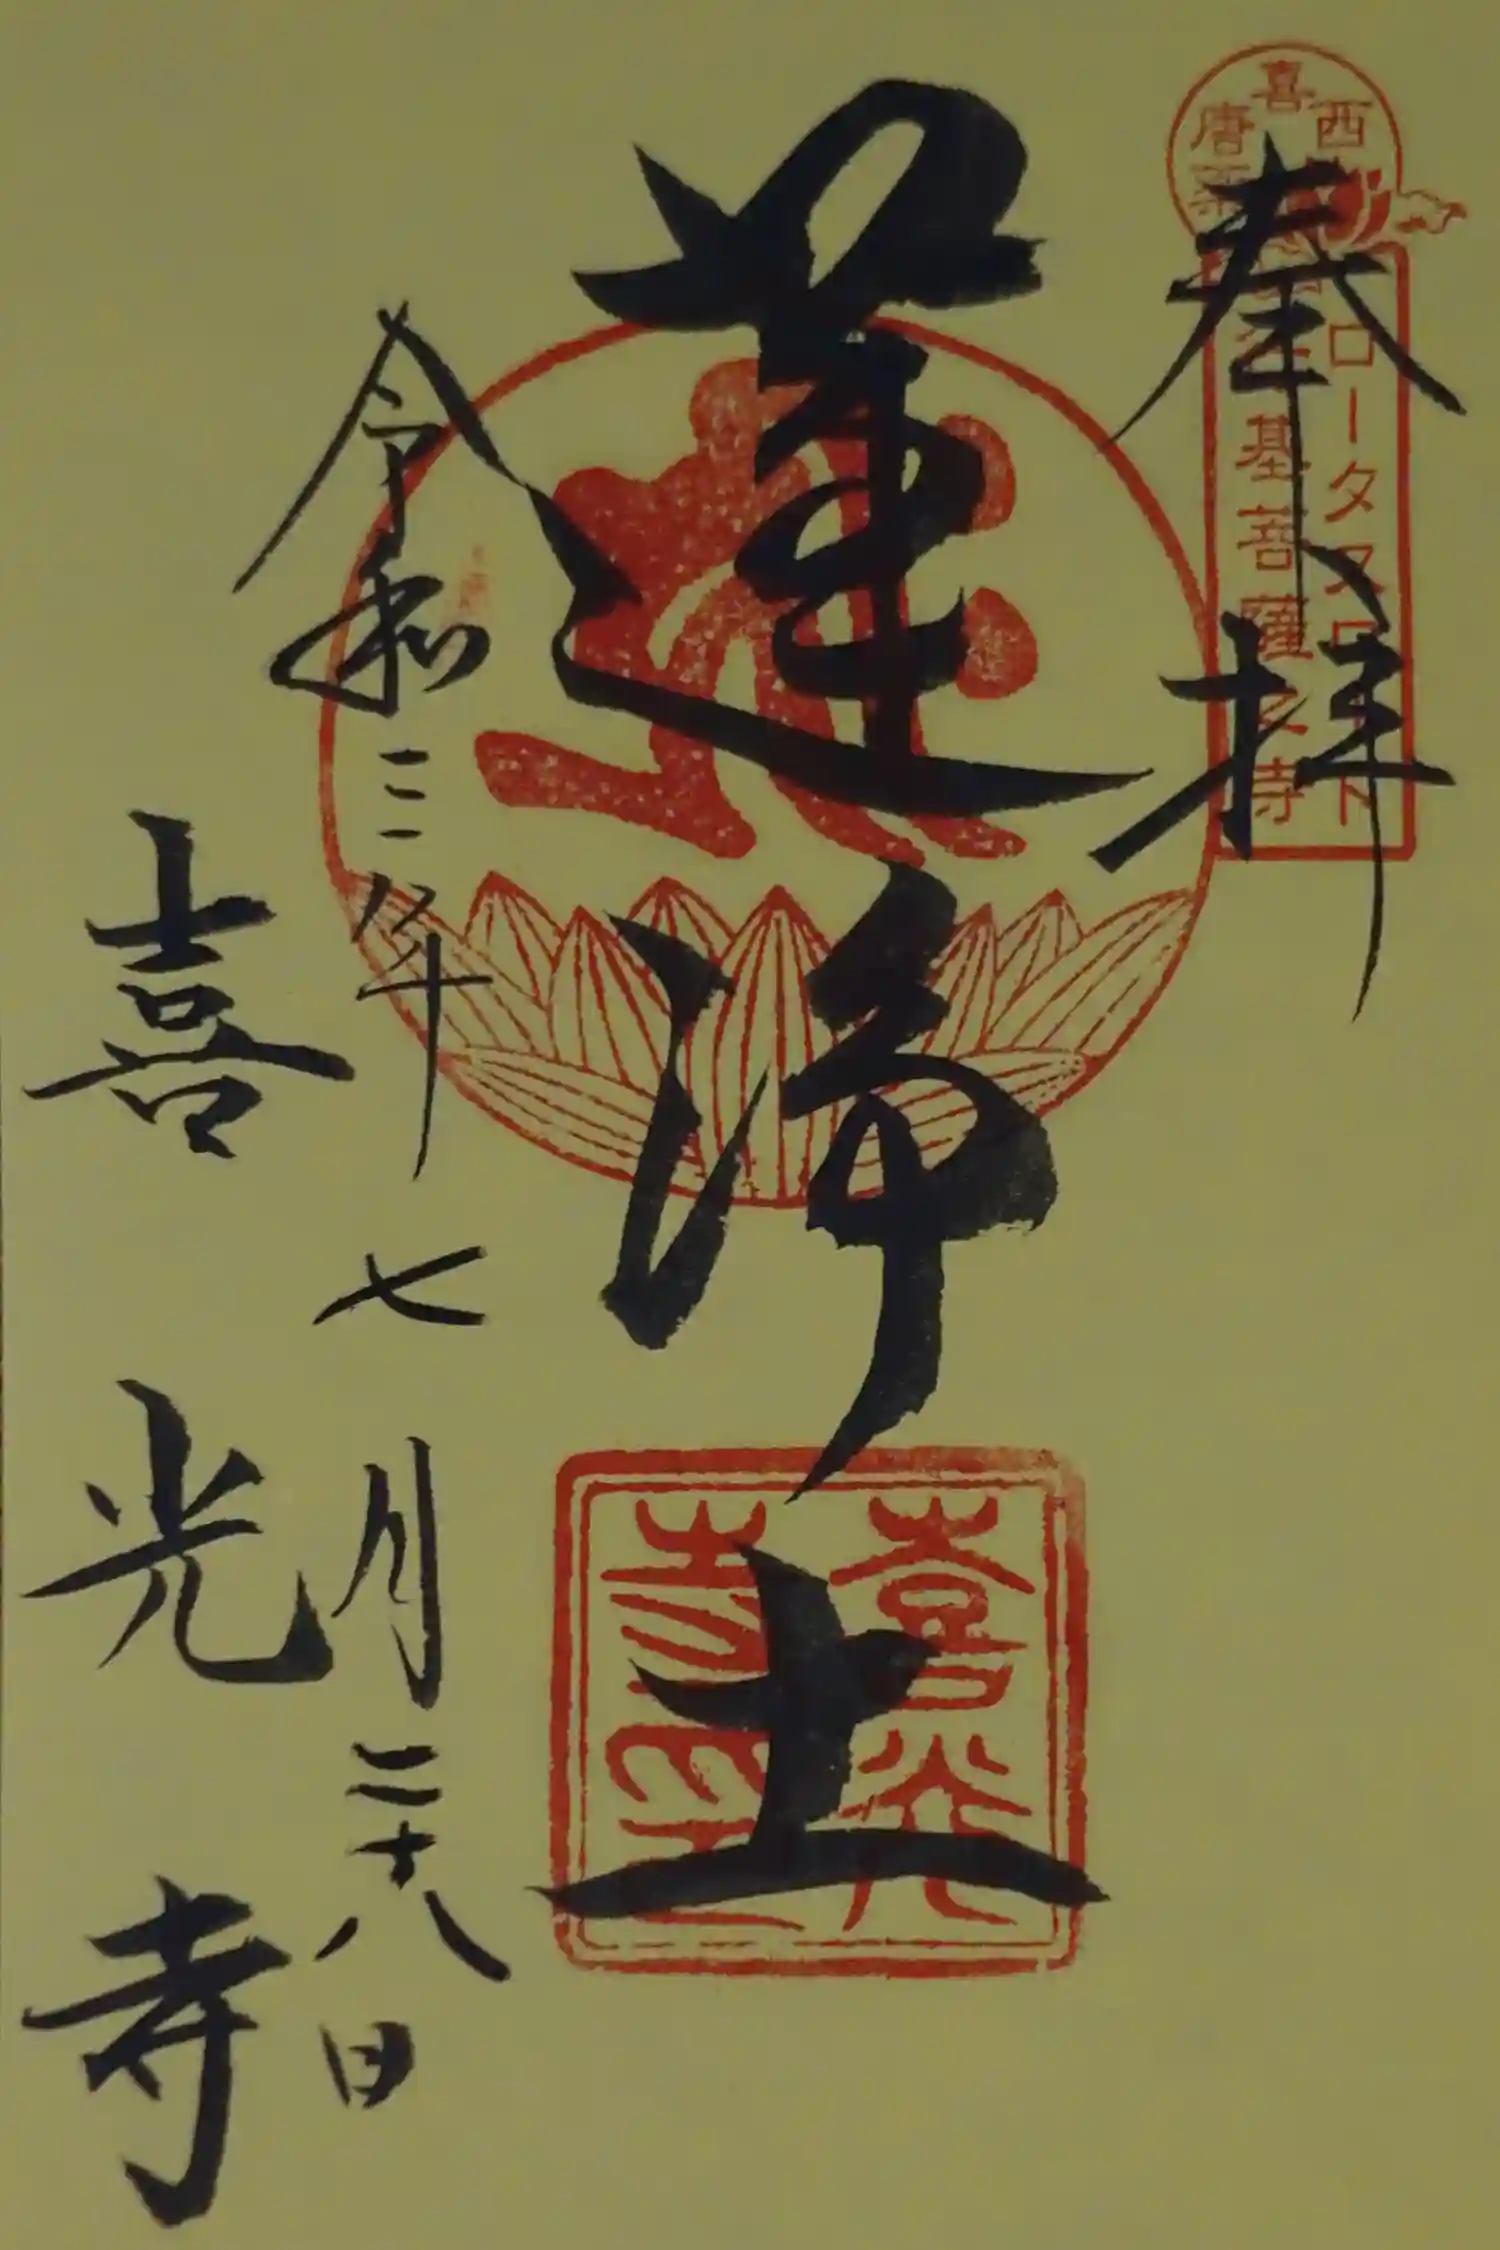 西喜唐薬
ロータスロード
行基菩薩之寺
奉拝
蓮浄土
喜光
寺印
令和三年七月二十八日
喜光寺